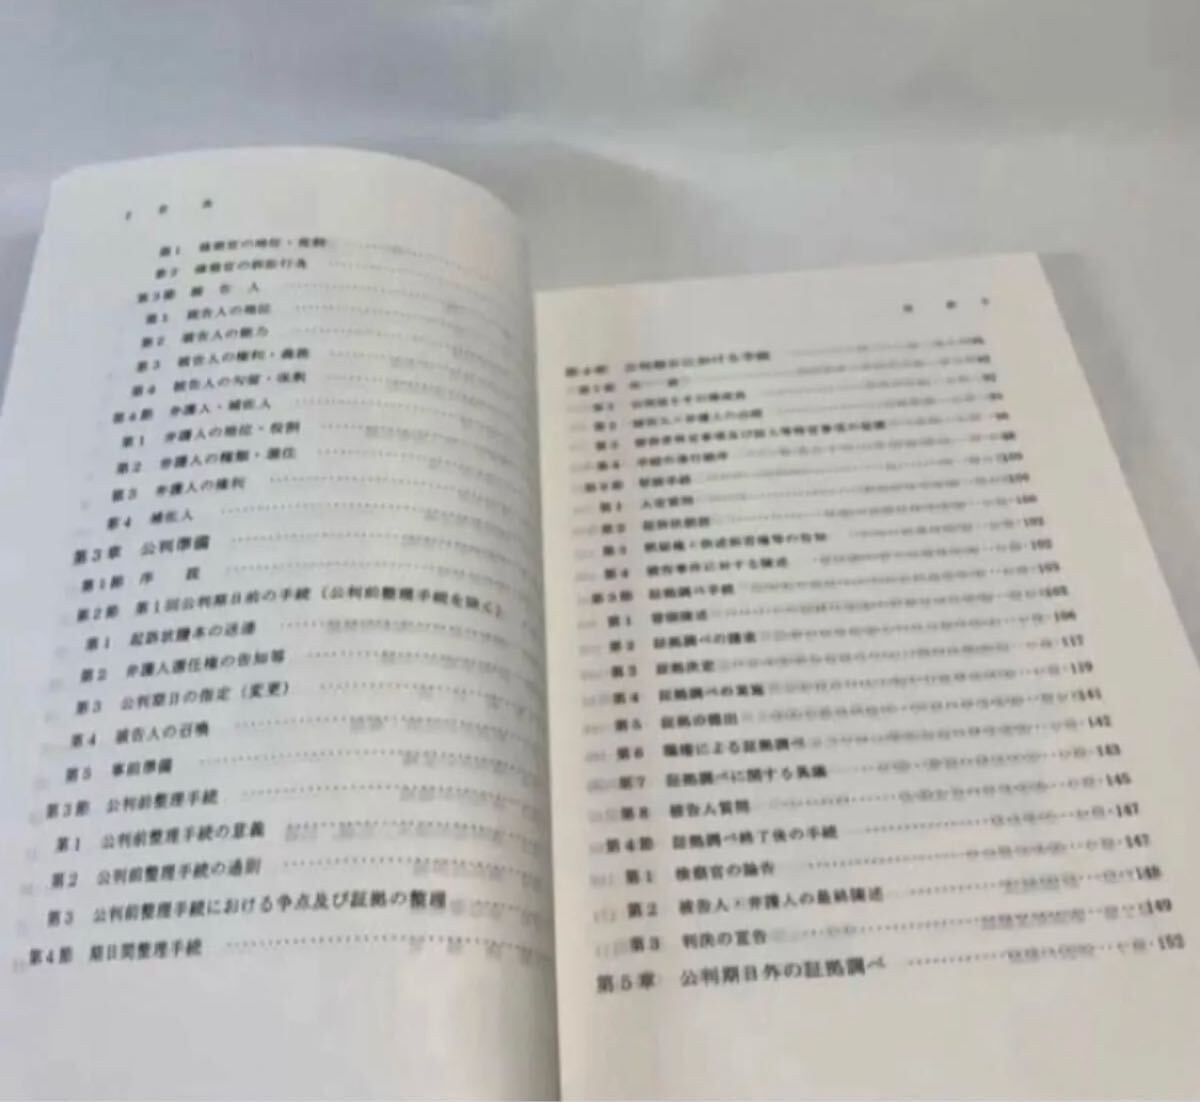 2 目 次
第1 検察官の地位・役割
第2 検察官の訴訟行為
第3節 被告人
第1 被告人の地位
第2 被告人の能力
第3 被告人の権利・義務
第4 被告人の勾留・保釈
第4節 弁護人・補佐人
第1 弁護人の地位・役割
第2 弁護人の種類・選任
第3 弁護人の権利
第4 補佐人
第3章 公判準備
第1節 序説
第2節 第1回公判期日前の手続(公判前整理手続を除く)
第1 起訴状謄本の送達
第2 弁護人選任権の告知等
第3 公判期日の指定(変更)
第4 被告人の召喚
第5 事前準備
第3節 公判前整理手続
第1 公判前整理手続の意義
第2 公判前整理手続の通則
第3 公判前整理手続における争点及び証拠の整理
第4節 期日間整理手続
目 次 3
第4章 公判期日における手続
第1節
第1 公判廷とその構成員
第2 被告人・弁護人の出頭
第3
第4 手続の進行順序
第2節 冒頭手続 100
第1 人定質問 100
第2 起訴状朗読 100
第3 黙秘権・供述拒否権等の告知 102
第4 被告事件に対する陳述 102
第3節 証拠調べ手続 103
第1 冒頭陳述 103
第2 証拠調べの請求 106
第3 証拠決定 117
第4 証拠調べの実施 119
第5 証拠の提出 141
第6 職権による証拠調べ 142
第7 証拠調べに関する異議 143
第8 被告人質問 145
第4節 証拠調べ終了後の手続 147
第1 検察官の論告 147
第2 被告人・弁護人の最終陳述 148
第3 判決の宣告 149
第5章 公判期日外の証拠調べ 152